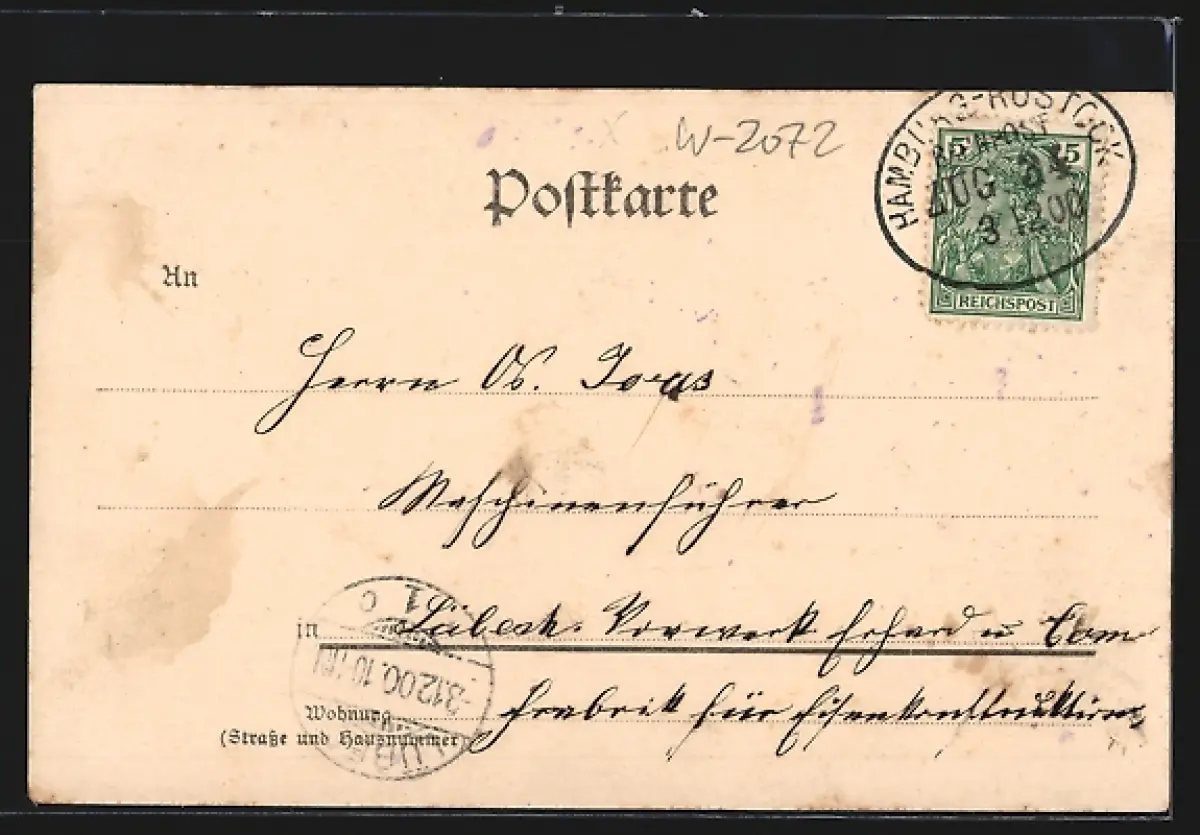 W-2072
HAMBURG-ROSTOCK
BAHNPOST
ZUG 34
3 12 00
5 5
REICHSPOST
Postkarte
An
Herrn
Maschinenführer
in Lübeck. Vorwerk u Com
3.12.00.10
1 c
Wohnung Fabrik für Eisenkonstruktion
(Straße und Hausnummer)